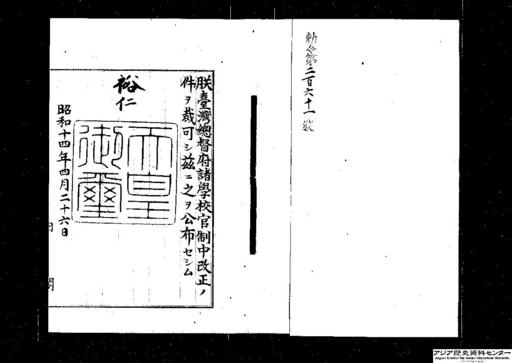 勅令第二百六十一號
朕臺灣總督府諸學校官制中改正ノ
件ヲ裁可シ茲ニ之ヲ公布セシム
裕仁
天皇
御璽
昭和十四年四月二十六日
内閣
アジア歴史資料センター
Japan Center for Asian Historical Records